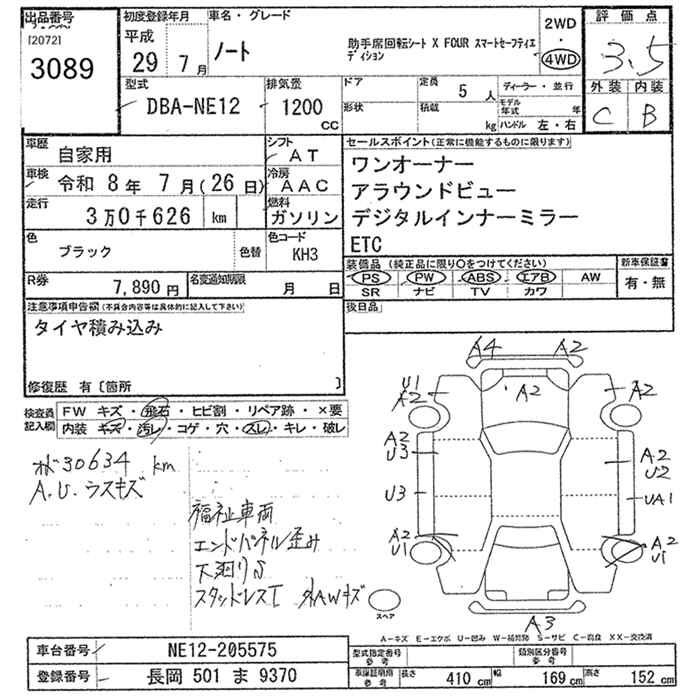 出品番号
[2072]
3089
初度登録年月
平成
29 7 月
車名・グレード
ノート
助手席回転シート X FOUR スマートセーフティエディション
2WD
・
4WD
評価点
3.5
外装 内装
C B
型式
DBA-NE12
排気量
1200
CC
ドア
形状
定員
5 人
積載
kg
ディーラー・並行
モデル年式 年
ハンドル 左・右
車歴
自家用
シフト
AT
車検
令和 8年 7月(26日)
冷房
AAC
走行
3万0千626 km
燃料
ガソリン
色
ブラック
色替
色コード
KH3
R券
7,890 円
名変通知期限
月 日
セールスポイント(正常に機能するものに限ります)
ワンオーナー
アラウンドビュー
デジタルインナーミラー
ETC
装備品 (純正品に限り〇をつけてください)
PS PW ABS エアB AW
SR ナビ TV カワ
新車保証書
有・無
後日品
注意事項申告欄(不具合内容等は具体的に記入して下さい)
タイヤ積み込み
修復歴 有〔箇所 〕
検査員記入欄
FW キズ・飛石・ヒビ割・リペア跡・×要
内装 キズ・汚レ・コゲ・穴・スレ・キレ・破レ
30634 km
A.U.ウスキズ
福祉車両
エンドパネル歪み
下廻りS
スタッドレスT 外AWキズ
A4 A2
U1
A2 A2 A2
A2
U3 A2
U2
U3 UA1
A2
U1 A2
U1
スペア
A3
A-キズ E-エクボ U-凹み W-補修跡 S-サビ C-腐食 XX-交換済
車台番号
NE12-205575
登録番号
長岡 501 ま 9370
型式指定番号
参考
類別区分番号
参考
車庫証明用
参考
長さ 410 cm 幅 169 cm 高さ 152 cm